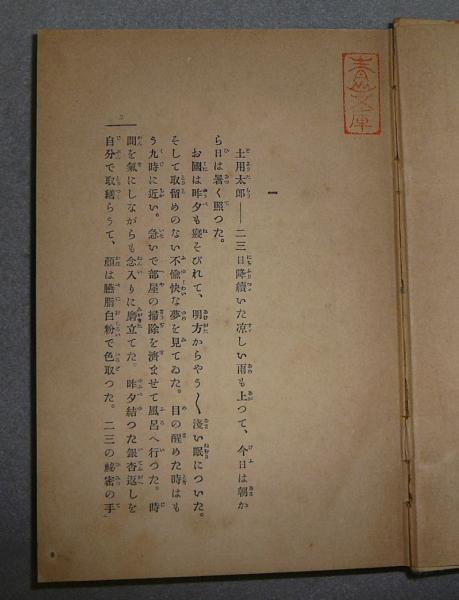 一
土用太郎――二三日降續いた凉しい雨も上つて、今日は朝か
ら日は暑く照つた。
お國は昨夕も寢そびれて、明方からやう〳〵淺い眠についた。
そして取留めのない不愉快な夢を見てゐた。目の醒めた時はも
う九時に近い。急いで部屋の掃除を濟ませて風呂へ行つた。時
間を氣にしながらも念入りに磨立てた。昨夕結つた銀杏返しを
自分で取繕らうて、顏は臙脂白粉で色取つた。二三の祕密の手